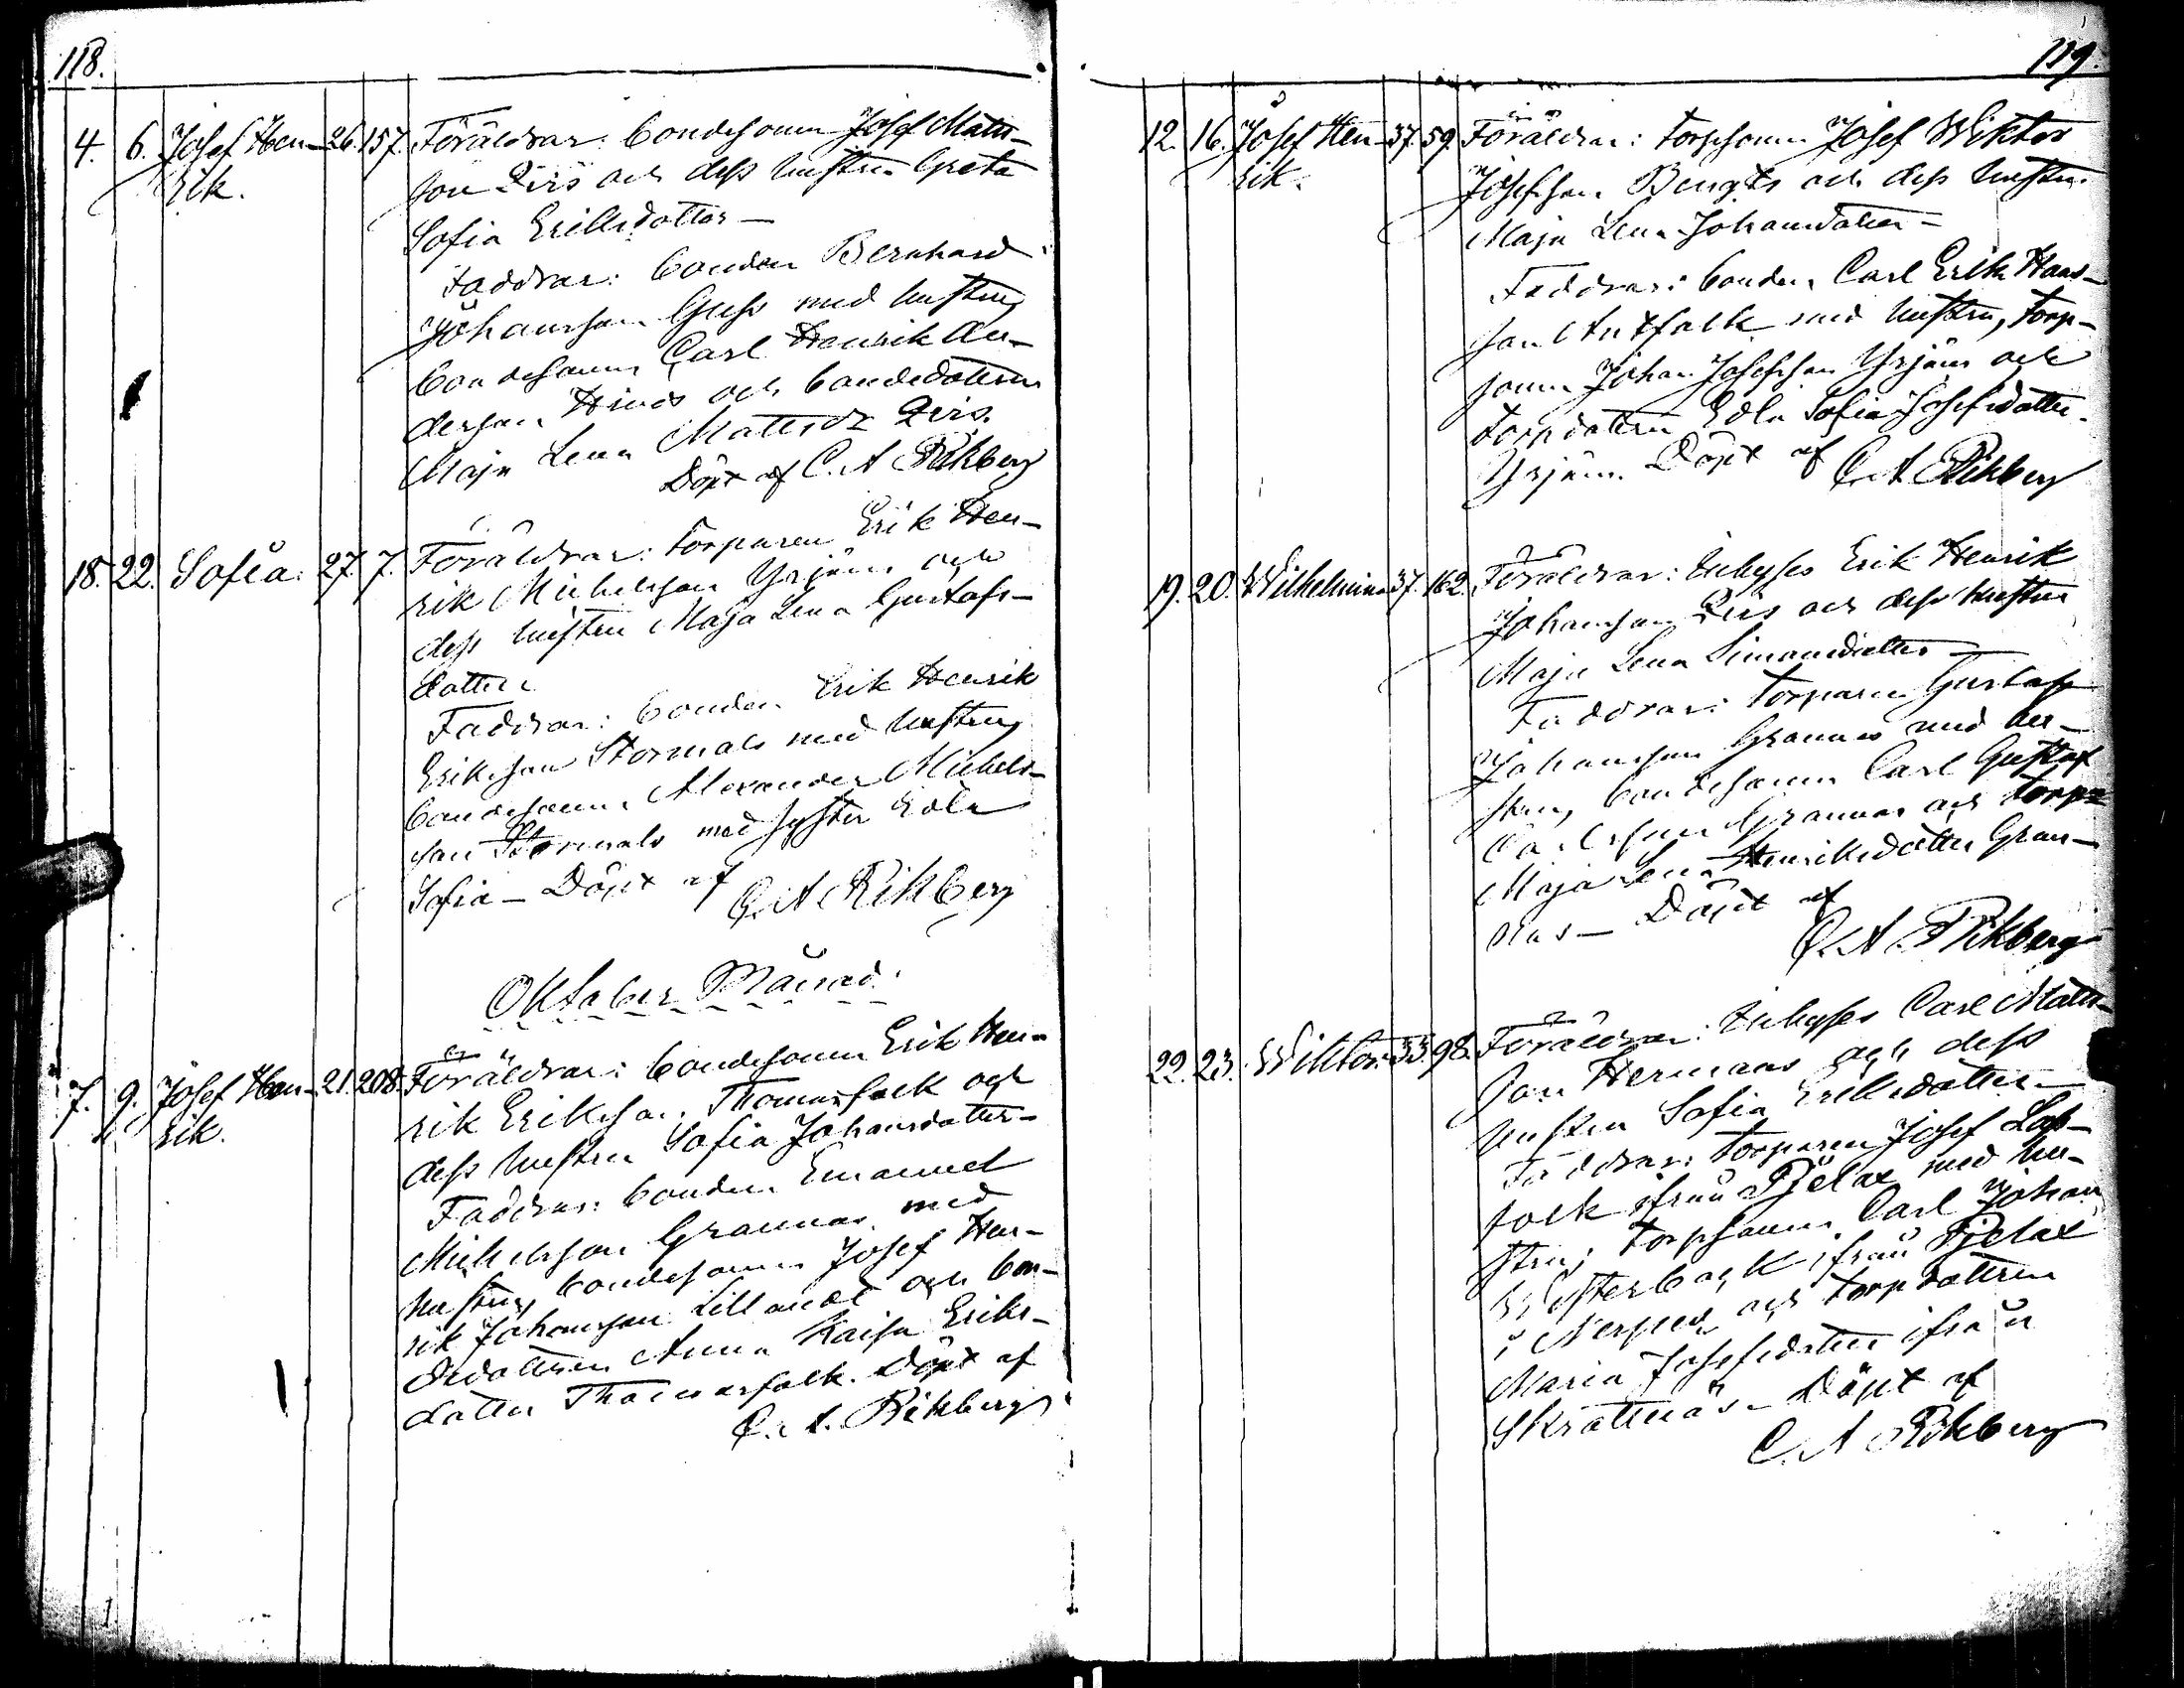 118.
4. 6. Josef Hen- 26. 157. Föräldrar: bondesonen Josef Matts-
rik. son Qvis och dess hustru Greta
Sofia Eriksdotter-
Faddrar: bonden Bernhard
Johansson Guss med hustru,
bondesonen Carl Henrik An-
dersson Hinds och bondedottren
Maja Lena Mattsdr Qvis.
Döpt af C. A Rikberg
18. 22. Sofia. 27. 7. Föräldrar: torparen Erik Hen-
rik Michelsson Yrjäns och
dess hustru Maja Lena Gustafs-
dotter
Faddrar: bonden Erik Henrik
Eriksson Stormals med hustru,
bondesonen Alexander Michels-
son Stormals med syster Edla
Sofia- Döpt af C. A Rikberg
Oktober Månad.
7. 9. Josef Hen- 21. 208. Föräldrar: bondesonen Erik Hen-
rik. rik Eriksson Thomasfolk och
dess hustru Sofia Johansdotter-
Faddrar: bonden Emanuel
Michelsson Grannas med
hustru, bondesonen Josef Hen-
rik Johansson Lillandt och bon-
dedottren Anna Kaisa Eriks-
dotter Thomasfolk. Döpt af
C. A. Rikberg
119.
12. 16. Josef Hen- 37. 59. Föräldrar: torpsonen Josef Wiktor
rik. Josefsson Bengts och dess hustru
Maja Lena Johansdotter-
Faddrar: bonden Carl Erik Hans-
son Antfolk med hustru, torp-
sonen Johan Josefsson Yrjäns och
torpdottren Edla Sofia Josefsdotter
Yrjäns. Döpt af C. A Rikberg
19. 20. Wilhelmina 37. 162. Föräldrar: Inhyses Erik Henrik
Johansson Qvis och dess hustru
Maja Lena Simonsdotter-
Faddrar: torparen Gustaf
Johansson Grannas med hu-
stru, bondesonen Carl Gustaf
Carlsson Grannas och torp=
Maja Lena Henriksdotter Gran-
nas- Döpt af
C. A. Rikberg
22. 23. Wiktor. 33. 98. Föräldrar: Inhyses Carl Matts-
son Hermans och dess
hustru Sofia Eriksdotter-
Faddrar: torparen Josef Lass-
folk ifrån Pjelax med hu-
stru, torpsonen Carl Johan
Westerback ifrån Pjelax
i Nerpes och torpdottren
Maria Josefsdotter ifrån
Skrattnäs- Döpt af
C. A Rikberg